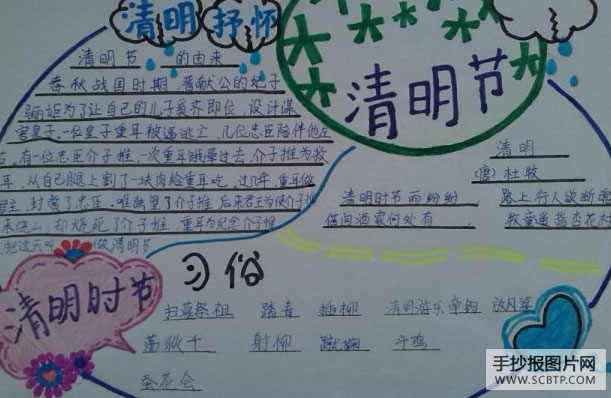 清明抒怀
清明节 的由来
春秋战国时期,晋献公的妃子
骊姬为了让自己的儿子奚齐即位,设计谋
害皇子,一位皇子重耳被逼逃亡,几位忠臣陪伴他左
有一位忠臣介子推,一次重耳饿晕过去,介子推为救
耳,从自己腿上割了一块肉给重耳吃,过几年,重耳做
君主,封赏了忠臣,唯独忘了介子推,后来君王为使介子推
来,烧山,却烧死了介子推,重耳为纪念介子推
把这天叫做清明节
清明节
清明
(唐)杜牧
清明时节雨纷纷 路上行人欲断魂
借问酒家何处有 牧童遥指杏花村
清明时节
习俗
扫墓祭祖 踏青 插柳 清明游乐牵钩 放风筝
荡秋千 射柳 蹴鞠 斗鸡
蚕花会
手抄报图片网
WWW.SCBTP.COM